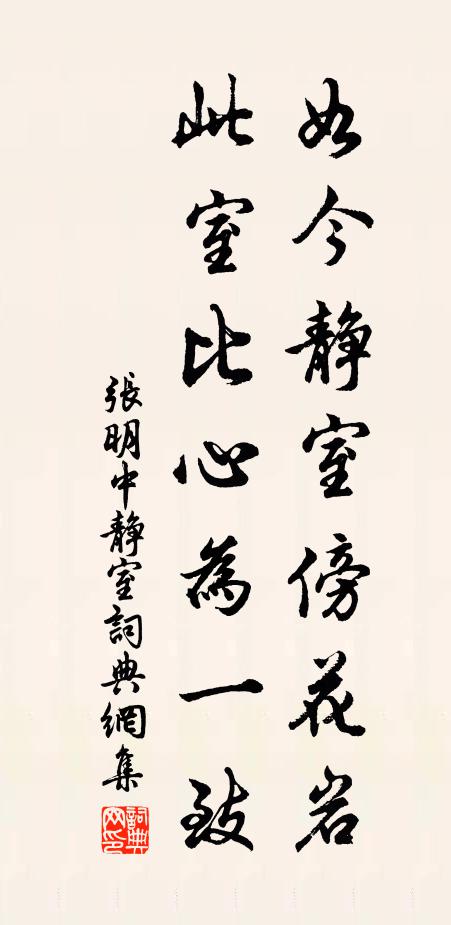 如今静室傍花岩
此室比心為一致
張明中静室詞典網集
詞典網印